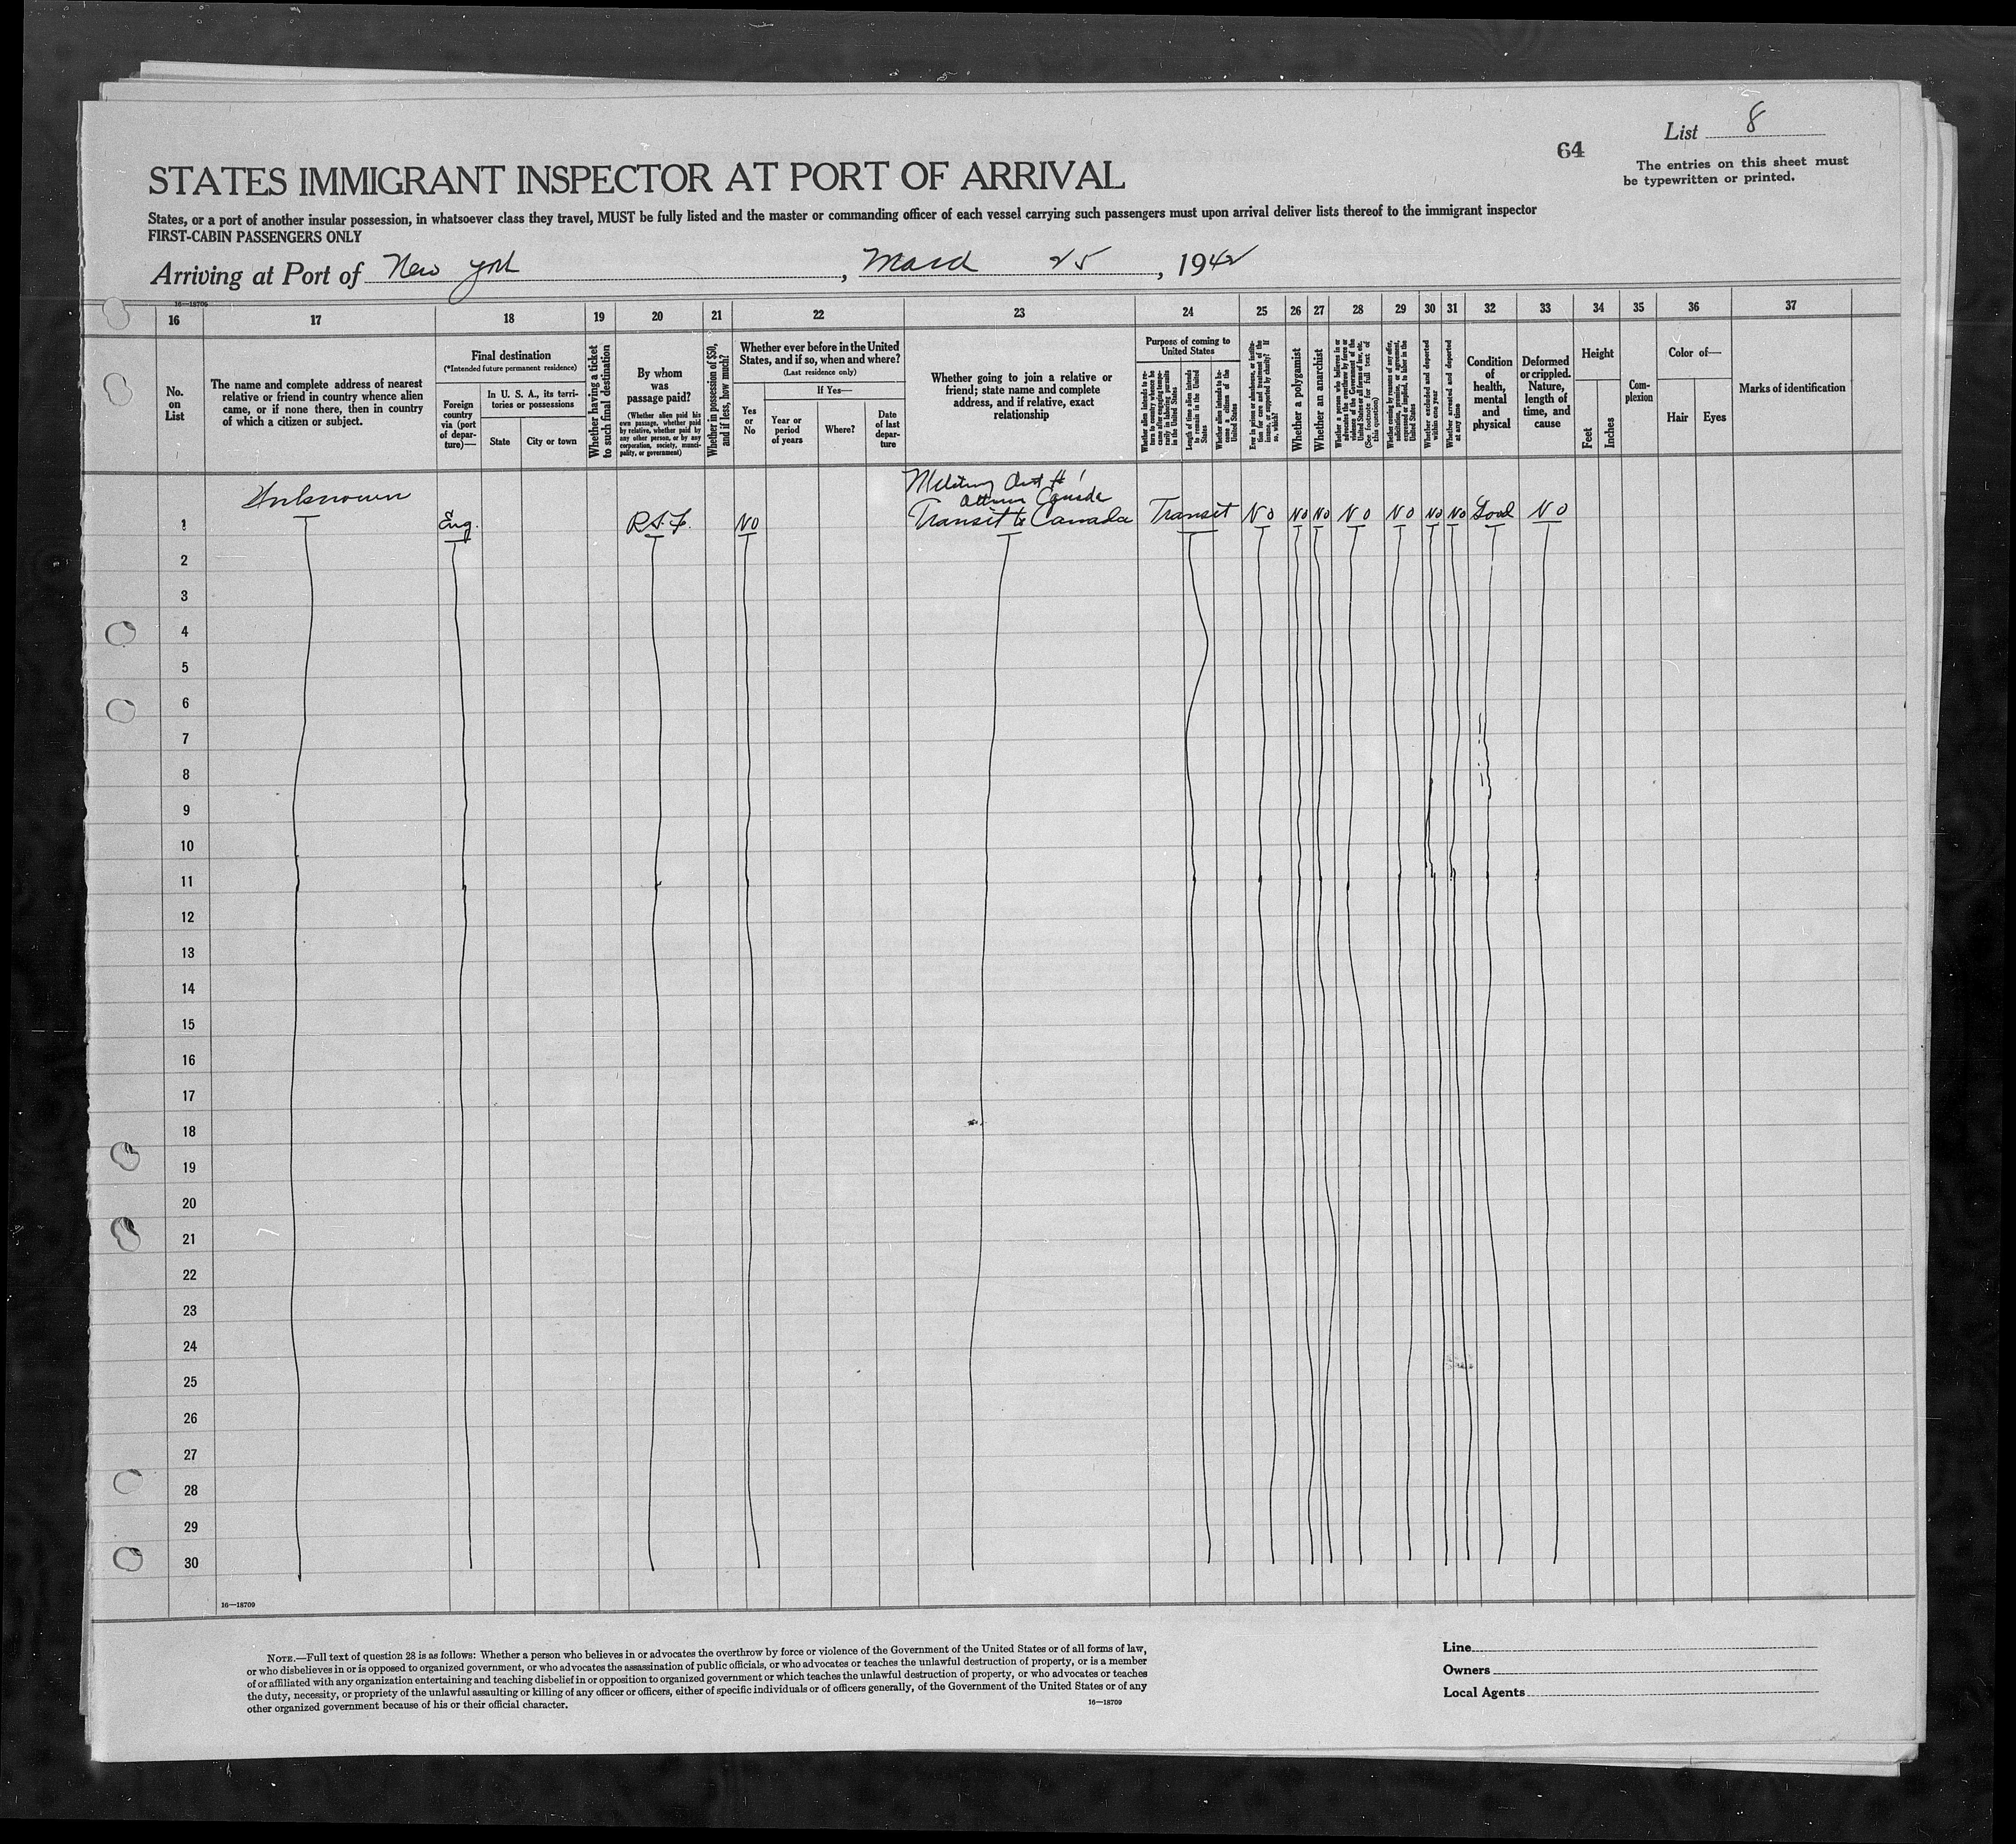 List 8
64
The entries on this sheet must
be typewritten or printed.
STATES IMMIGRANT INSPECTOR AT PORT OF ARRIVAL
States, or a port of another insular possession, in whatsoever class they travel, MUST be fully listed and the master or commanding officer of each vessel carrying such passengers must upon arrival deliver lists thereof to the immigrant inspector
FIRST-CABIN PASSENGERS ONLY
Arriving at Port of New York, March 25, 1942
16—18709
16 17 18 19 20 21 22 23 24 25 26 27 28 29 30 31 32 33 34 35 36 37
No.
on
List
The name and complete address of nearest
relative or friend in country whence alien
came, or if none there, then in country
of which a citizen or subject.
Final destination
(*Intended future permanent residence)
Foreign
country
via (port
of depar-
ture)—
In U. S. A., its terri-
tories or possessions
State
City or town
Whether having a ticket
to such final destination
By whom
was
passage paid?
(Whether alien paid his
own passage, whether paid
by relative, whether paid by
any other person, or by any
corporation, society, munici-
pality, or government)
Whether in possession of $50,
and if less, how much?
Whether ever before in the United
States, and if so, when and where?
(Last residence only)
Yes
or
No
If Yes—
Year or
period
of years
Where?
Date
of last
depar-
ture
Whether going to join a relative or
friend; state name and complete
address, and if relative, exact
relationship
Purpose of coming to
United States
Whether alien intends to re-
turn to country whence he
came after engaging tempo-
rarily in laboring pursuits
in the United States
Length of time alien intends
to remain in the United
States
Whether alien intends to be-
come a citizen of the
United States
Ever in prison or almshouse, or institu-
tion for care and treatment of the
insane, or supported by charity? If
so, which?
Whether a polygamist
Whether an anarchist
Whether a person who believes in or
advocates the overthrow by force or
violence of the Government of the
United States or all forms of law, etc.
(See footnote for full text of
this question)
Whether coming by reason of any offer,
solicitation, promise, or agreement,
expressed or implied, to labor in the
United States
Whether excluded and deported
within one year
Whether arrested and deported
at any time
Condition
of
health,
mental
and
physical
Deformed
or crippled.
Nature,
length of
time, and
cause
Height
Feet
Inches
Com-
plexion
Color of—
Hair
Eyes
Marks of identification
Military Dist #1
Ottawa Canada
Unknown
1 Eng. R.A.F. No Transit to Canada Transit No No No No No No No Good No
2
3
4
5
6
7
8
9
10
11
12
13
14
15
16
17
18
19
20
21
22
23
24
25
26
27
28
29
30
16—18709
NOTE.—Full text of question 28 is as follows: Whether a person who believes in or advocates the overthrow by force or violence of the Government of the United States or of all forms of law,
or who disbelieves in or is opposed to organized government, or who advocates the assassination of public officials, or who advocates or teaches the unlawful destruction of property, or is a member
of or affiliated with any organization entertaining and teaching disbelief in or opposition to organized government or which teaches the unlawful destruction of property, or who advocates or teaches
the duty, necessity, or propriety of the unlawful assaulting or killing of any officer or officers, either of specific individuals or of officers generally, of the Government of the United States or of any
other organized government because of his or their official character.
16—18709
Line
Owners
Local Agents